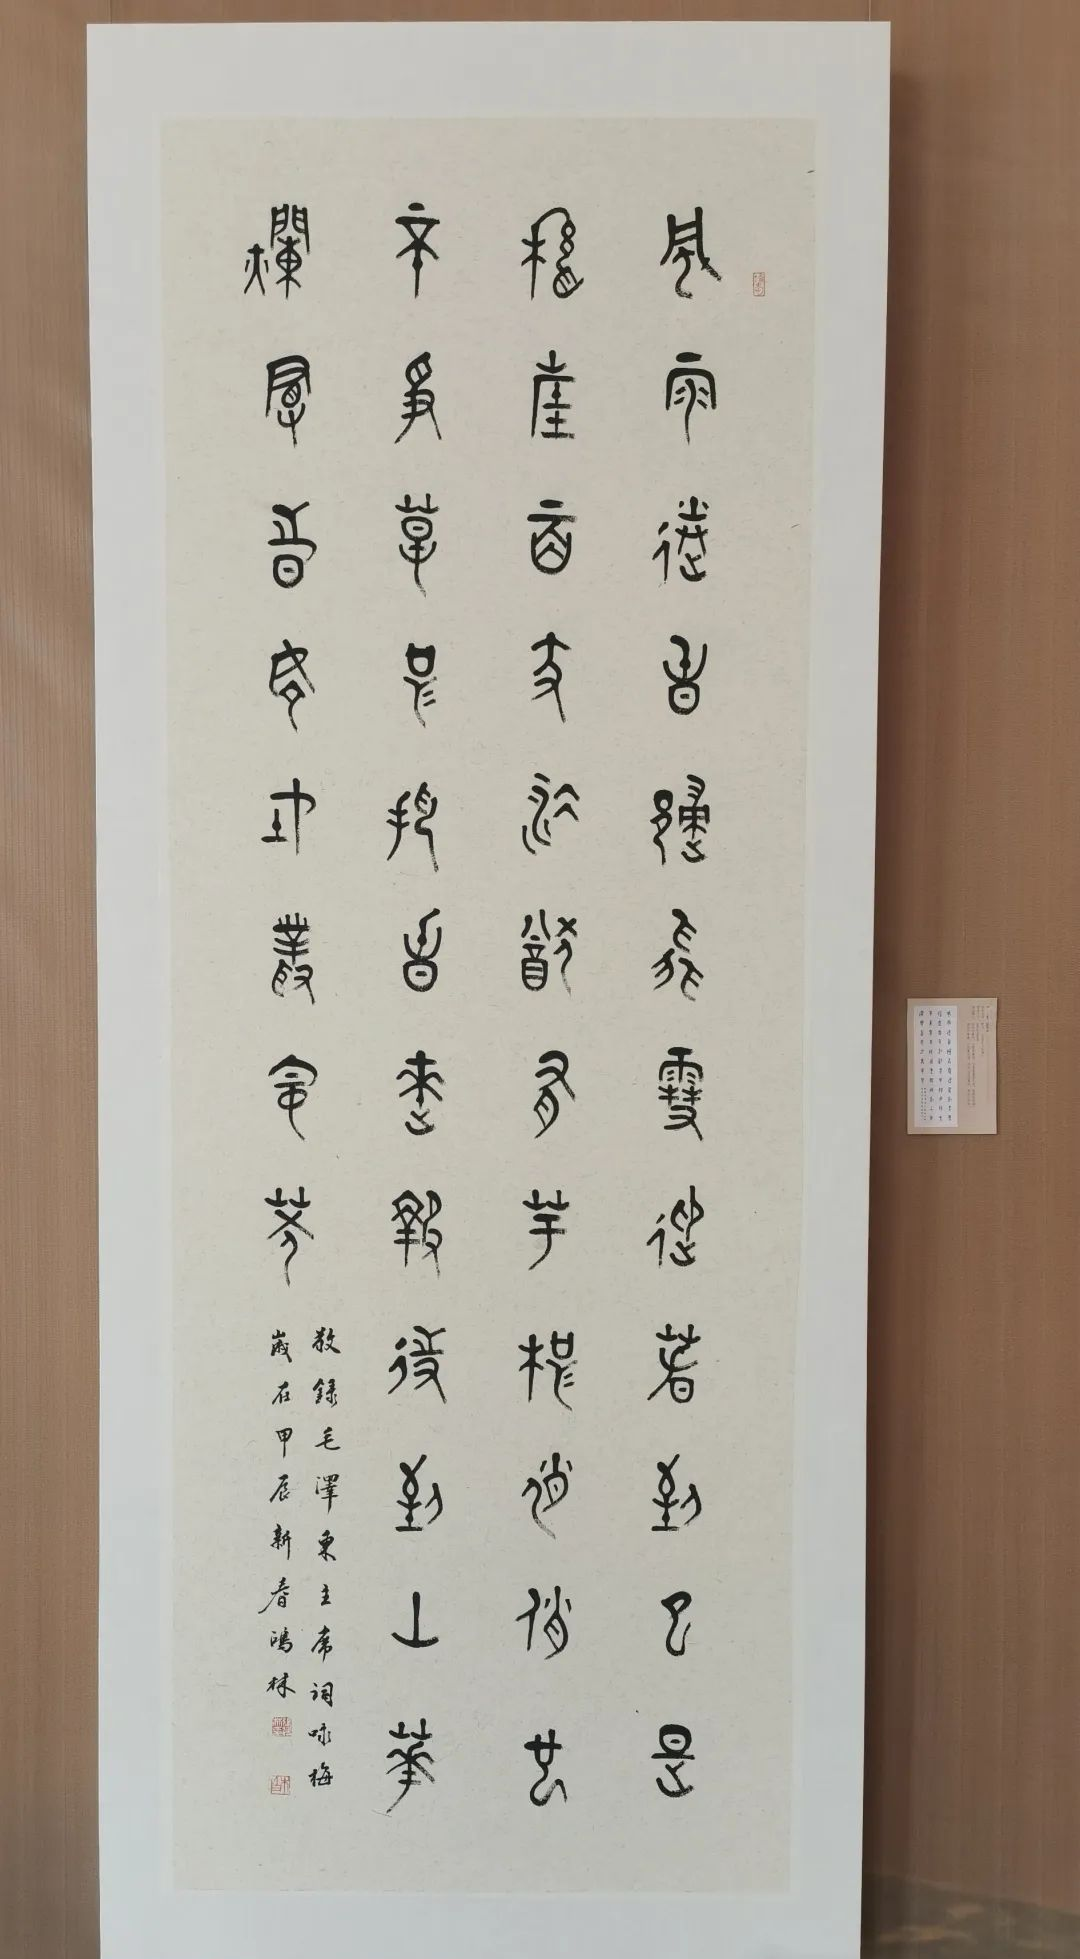 風雨送春歸飛雪迎春到已是
懸崖百丈冰猶有花枝俏俏也
不爭春只把春來報待到山華
爛漫時她在叢中笑
敬錄毛澤東主席詞咏梅
歲在甲辰新春鴻林